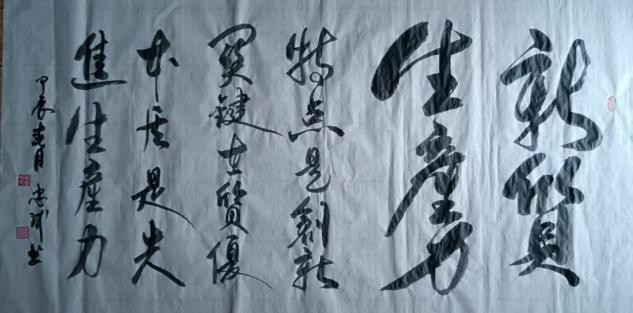 新質
生產力
特点是創新
関鍵在質優
本质是先
進生產力
甲辰春月 忠 书